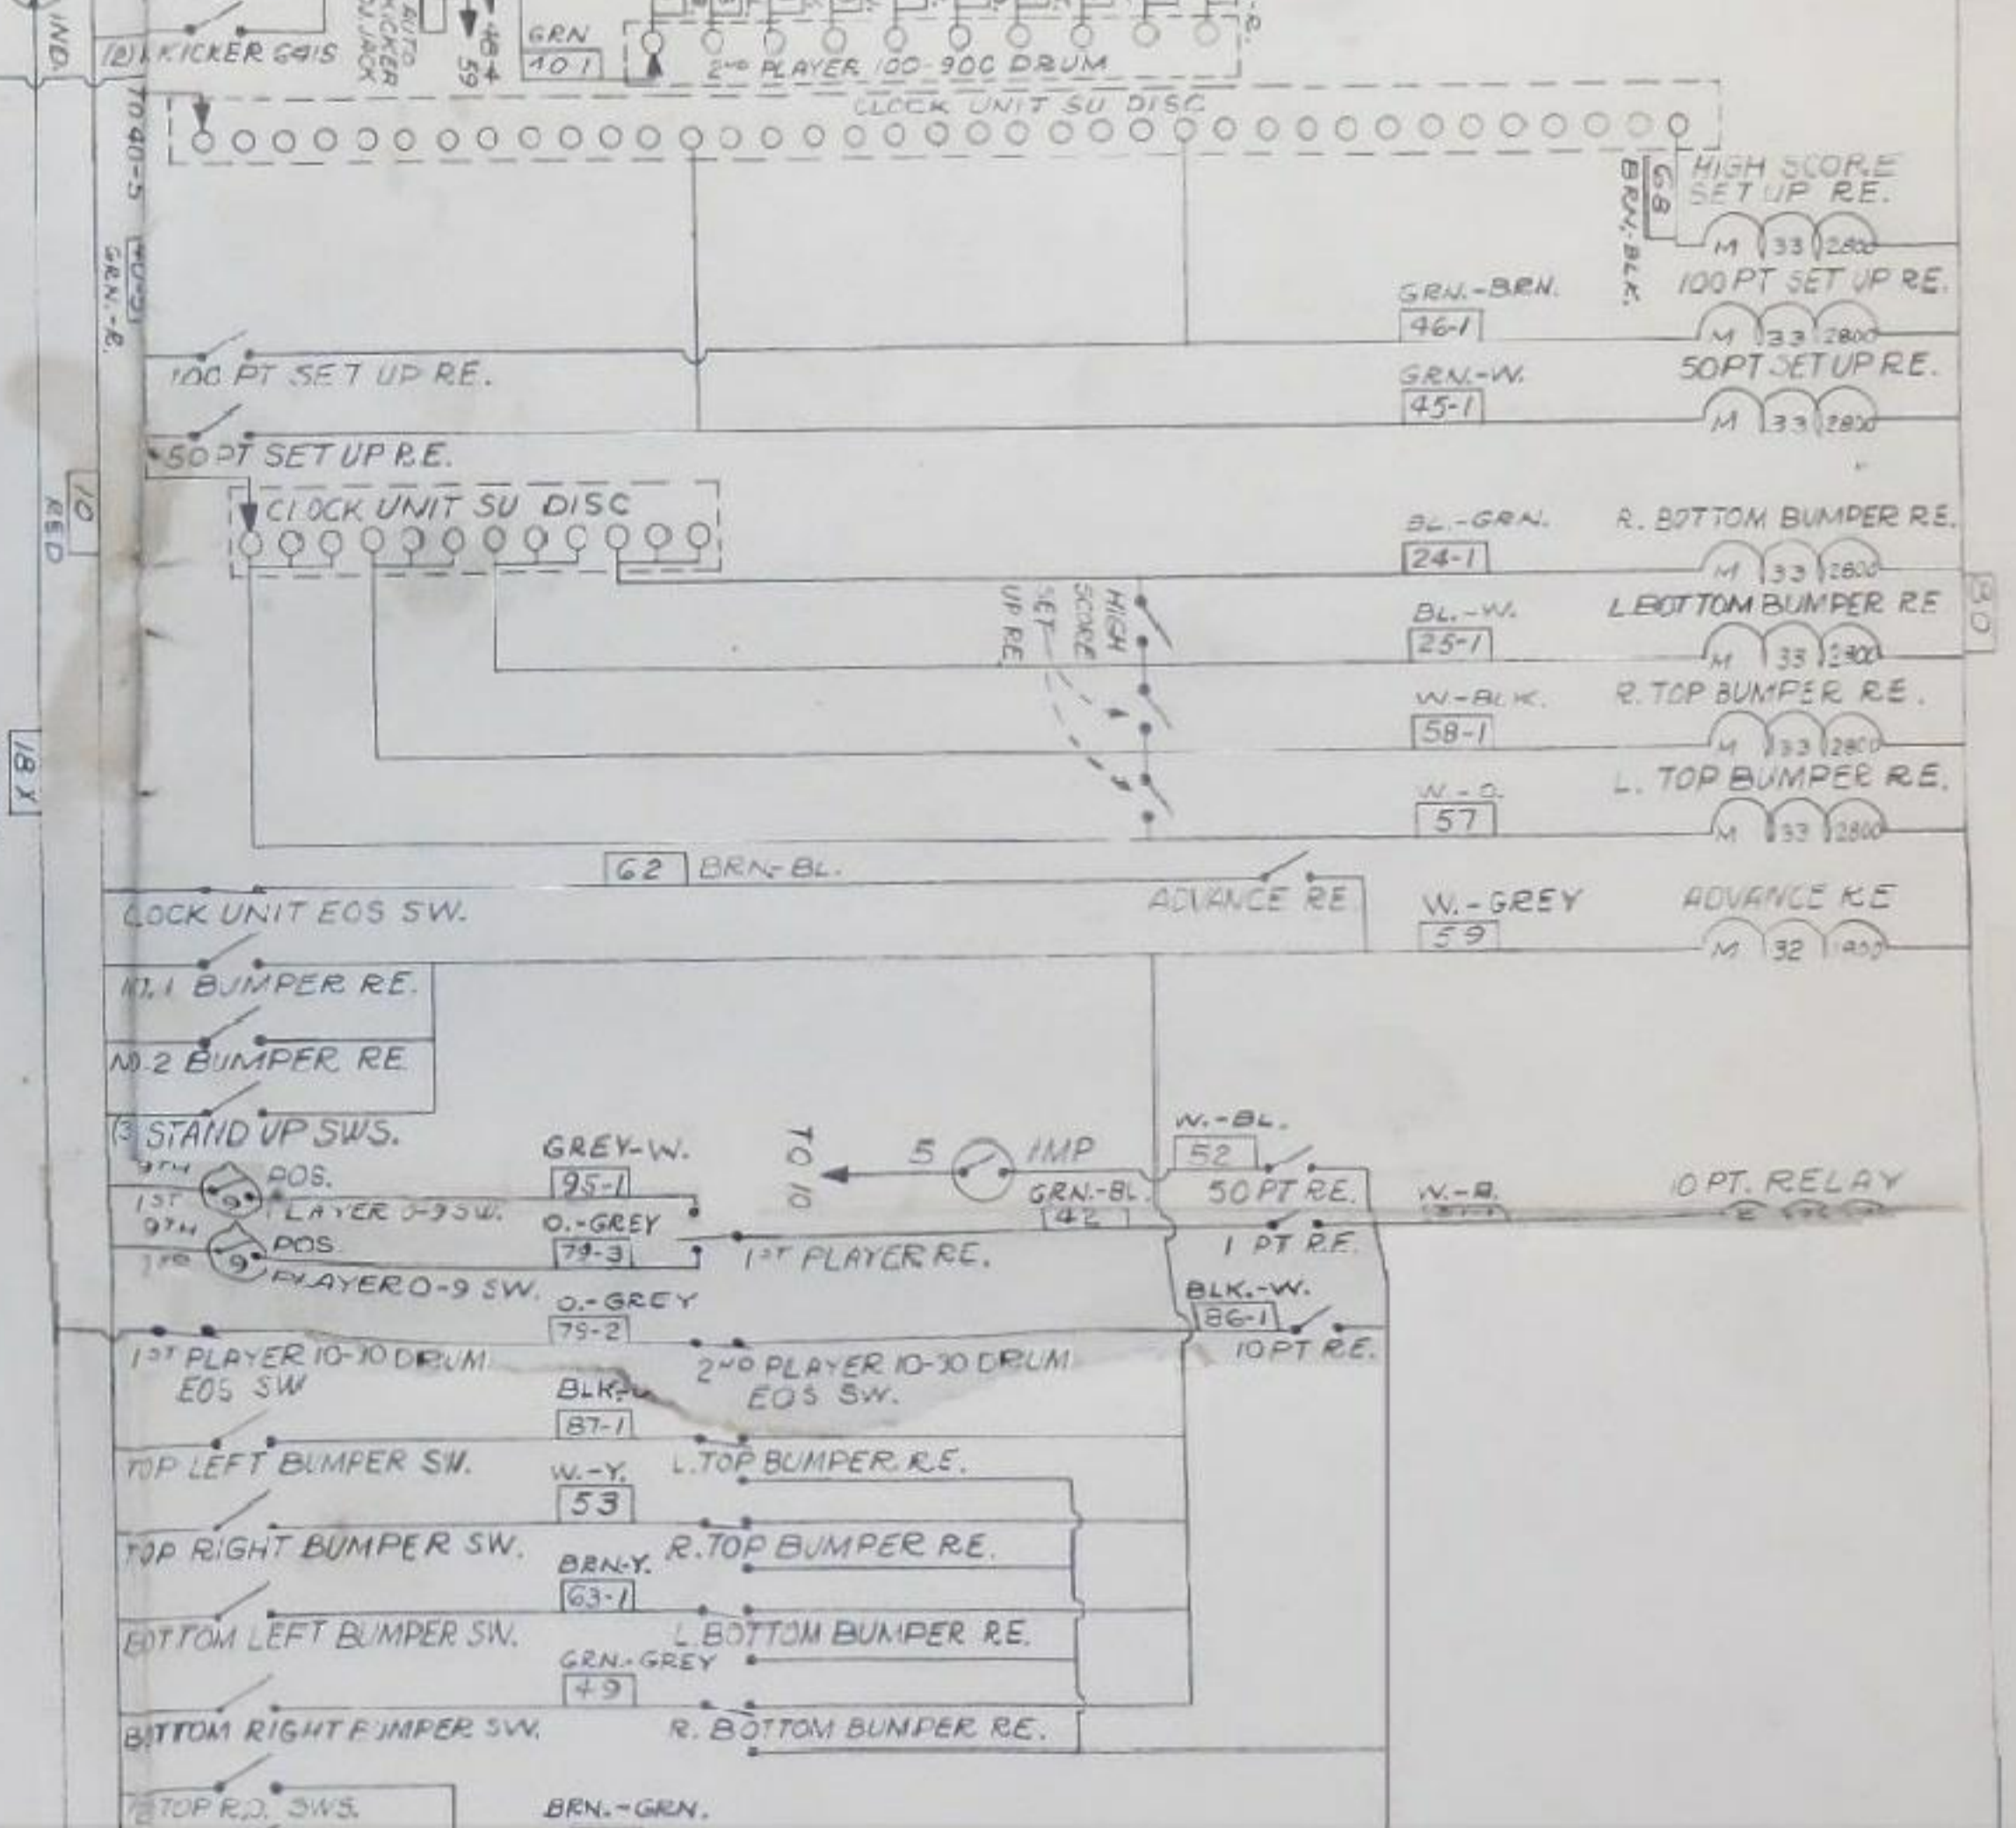 IND.
KICKER GATS
AUTO
KICKER
ON JACK
48-4
59
GRN
101
2ND PLAYER 100-900 DRUM
CLOCK UNIT SU DISC
TO 40-5
GRN.-R.
68
BRN-BLK.
HIGH SCORE
SET UP RE.
M 33 2800
GRN.-BRN.
46-1
100 PT SET UP RE.
M 33 2800
100 PT SET UP RE.
GRN.-W.
45-1
50 PT SET UP RE.
M 33 2800
50 PT SET UP RE.
10
RED
CLOCK UNIT SU DISC
BL.-GRN.
24-1
R. BOTTOM BUMPER RE.
M 33 2800
HIGH
SCORE
SET
UP RE.
BL.-W.
25-1
L BOTTOM BUMPER RE
M 33 2800
90
W-BLK.
58-1
R. TOP BUMPER RE.
M 33 2800
18 X
W-O.
57
L. TOP BUMPER RE.
M 33 2800
62 BRN-BL.
CLOCK UNIT EOS SW.
ADVANCE RE.
W.-GREY
59
ADVANCE RE
M 32 1900
NO.1 BUMPER RE.
NO.2 BUMPER RE
(3) STAND UP SWS.
9TH POS.
1ST PLAYER 0-9 SW.
GREY-W.
95-1
TO 10
5 IMP
GRN.-BL.
42
W.-BL.
52
50 PT RE.
10 PT. RELAY
9TH POS
9 PLAYER 0-9 SW.
O.-GREY
79-3
1ST PLAYER RE.
1 PT RE.
O.-GREY
79-2
BLK.-W.
86-1
10 PT RE.
1ST PLAYER 10-90 DRUM
EOS SW
2ND PLAYER 10-90 DRUM
EOS SW.
87-1
TOP LEFT BUMPER SW.
L. TOP BUMPER RE.
W.-Y.
53
TOP RIGHT BUMPER SW.
R. TOP BUMPER RE.
BRN-Y.
63-1
BOTTOM LEFT BUMPER SW.
L. BOTTOM BUMPER RE.
GRN.-GREY
49
BOTTOM RIGHT BUMPER SW.
R. BOTTOM BUMPER RE.
TOP R.O. SWS.
BRN.-GRN.